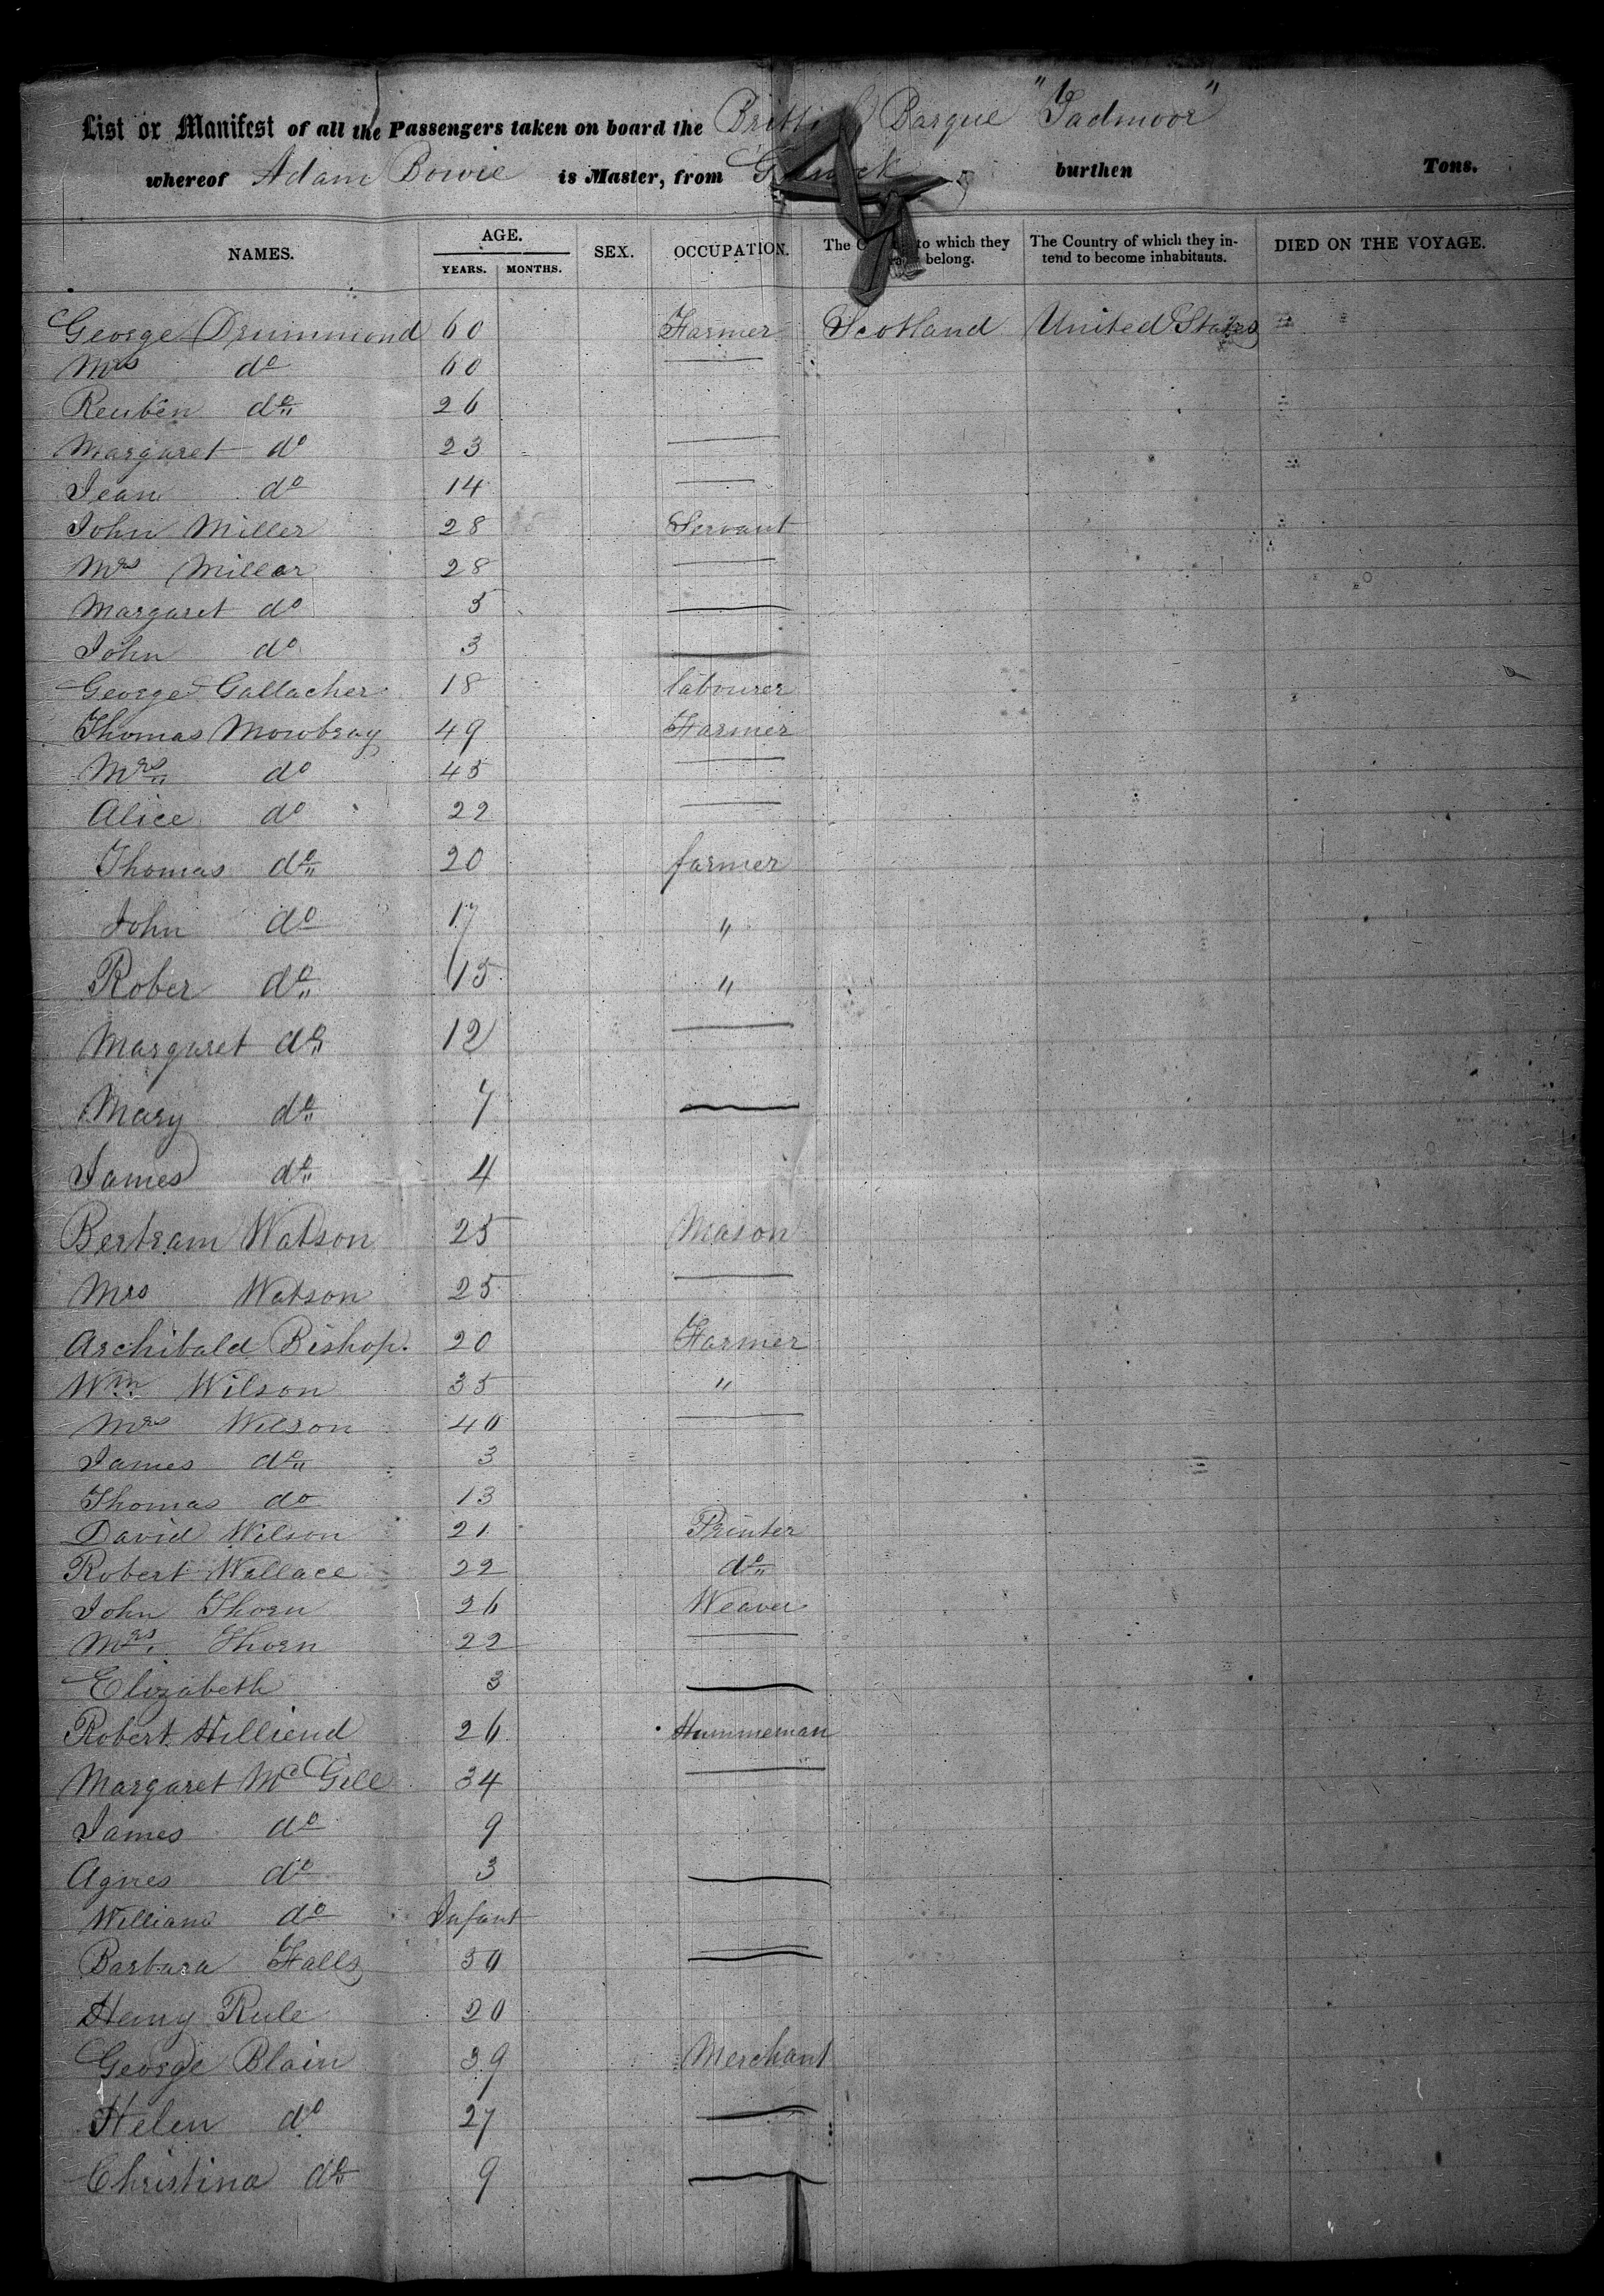 List or Manifest of all the Passengers taken on board the British Barque "Tadmoor"
whereof Adam Bowie is Master, from burthen Tons.
NAMES. AGE. SEX. OCCUPATION. The to which they belong. The Country of which they in- tend to become inhabitants. DIED ON THE VOYAGE.
YEARS. MONTHS.
George Drummond 60 Farmer Scotland United States
Mrs do 60 —
Reuben do 26
Margaret do 23 —
Jean do 14 —
John Miller 28 Servant
Mrs Millar 28 —
Margaret do 5 —
John do 3 —
George Gallacher 18 labourer
Thomas Mowbray 49 Farmer
Mrs do 45 —
Alice do 22 —
Thomas do 20 farmer
John do 17 "
Rober do 15 "
Margaret do 12 —
Mary do 7 —
James do 4
Bertram Watson 25 Mason
Mrs Watson 25 —
Archibald Bishop. 20 Farmer
Wm Wilson 35 "
Mrs Wilson 40 —
James do 3
Thomas do 13
David Wilson 21 Printer
Robert Wallace 22 do
John Thorn 26 Weaver
Mrs. Thorn 22 —
Elizabeth 3 —
Robert 26
Margaret McGill 34 —
James do 9
Agnes do 3 —
William do Infant
Barbara Falls 30 —
Henry Rule 20
George Blain 39 Merchant
Helen do 27 —
Christina do 9 —